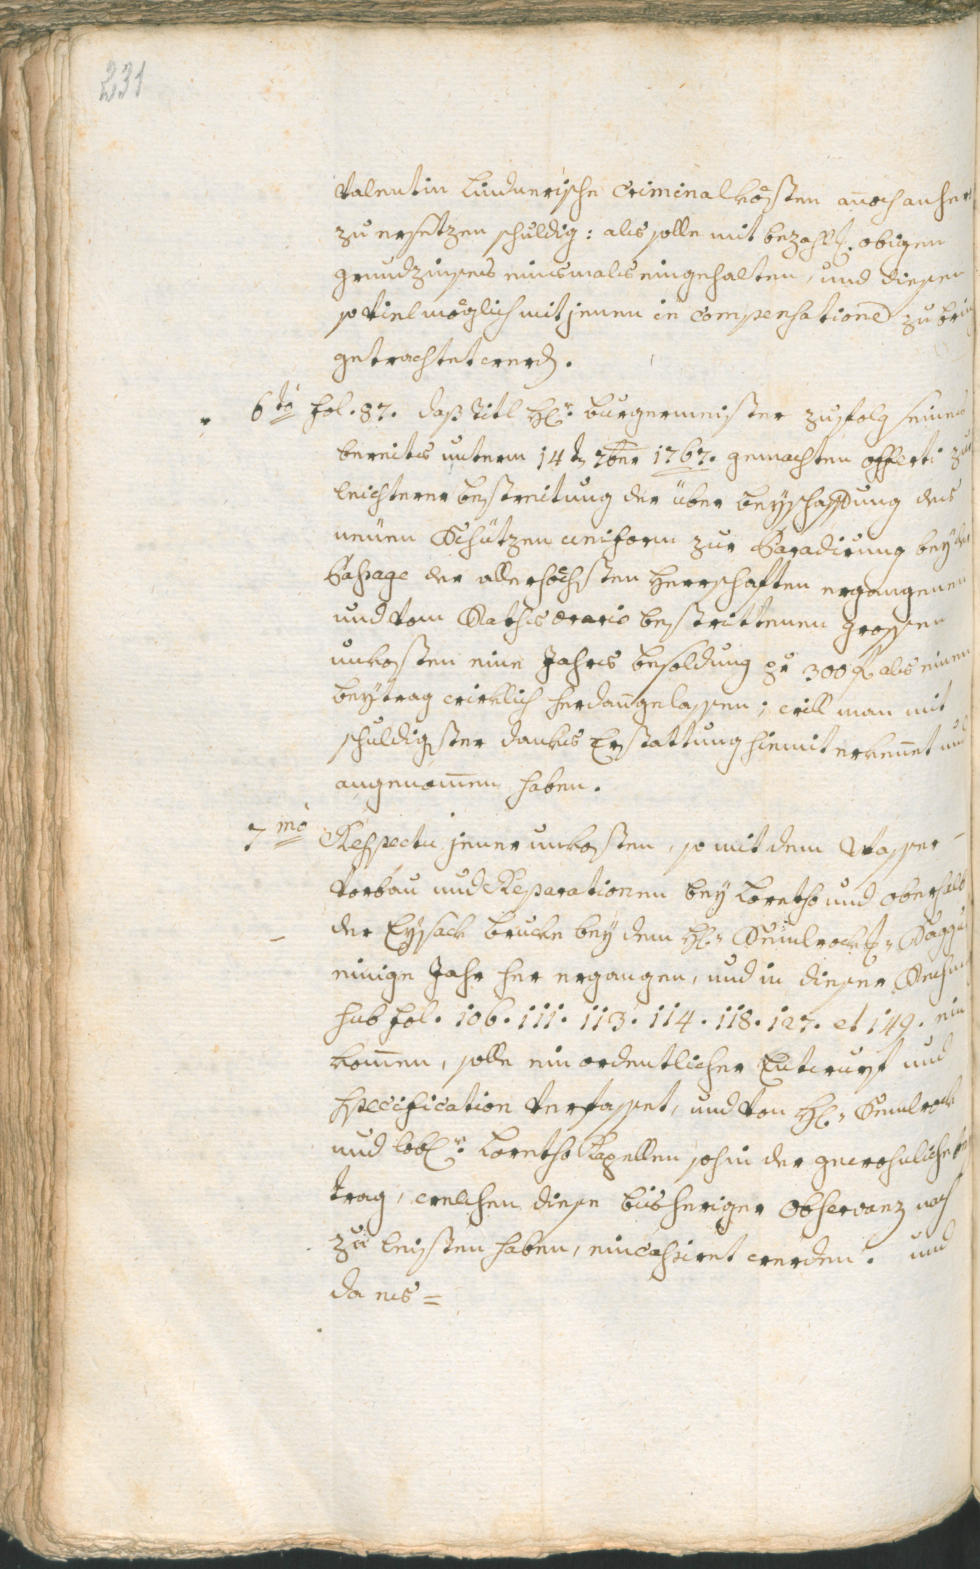 231
Valentin Lindnerische Criminalkösten annoch anher
zu ersetzen schuldig: als solle mit bezahlg. obigen
grundzinses einsmals eingehalten, und diesen
so viel möglich mit jenen in Compensatione zu brin
getrachtet werd.
6to fol. 87. daß Titl H: burgermeister zufolg seines
bereits unterm 14t 7ber 1767. gemachten offerti zu
leichterer bestreitung der über beyschaffung des
neuen Schützen uniform zur Paradirung bey der
Passage der allerhöchsten Herrschaften ergangenen
und vom Raths ærario bestrittenen grossen
unkosten eine Jahrs besoldung pr 300 f als einen
beytrag wirklich herdangelassen; will man mit
schuldigster danks Erstattung hiemit erkennet und
angenomen haben.
7mo Respectu jener unkosten, so mit dem Wasser-
vorbau und Reparationen bey Loretho und oberhalb
der Eysack brucke bey dem H:
einige Jahr her ergangen, und in dieser
sub fol. 106. 111. 113. 114. 118. 127. et 149. ein
komen, solle ein ordentlicher Entwurf und
specification verfasset, und von H:
und löbl: Loretho Capellen sohin der gewohnliche
trag, welchen diese bisheriger Observanz nach
zu leisten haben, eincassiret werden. und
da es=